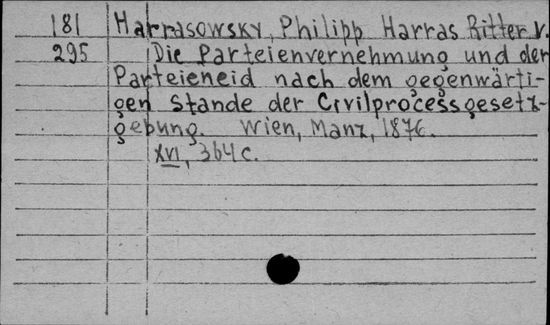 181 Harrasowsky, Philipp Harras Ritter v.
295 Die Parteienvernehmung und der
Parteieneid nach dem gegenwärti-
gen Stande der Civilprocessgesetz-
gebung. Wien, Manz, 1876.
XVI, 364 c.